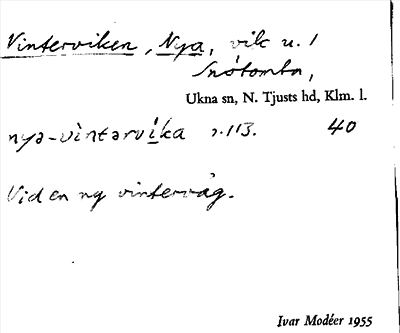 Vinterviken, Nya, vik u. /
Snötomta,
Ukna sn, N. Tjusts hd, Klm. l.
nya-vintərvika 2.113. 40
Vid en ny vinterväg.
Ivar Modéer 1955